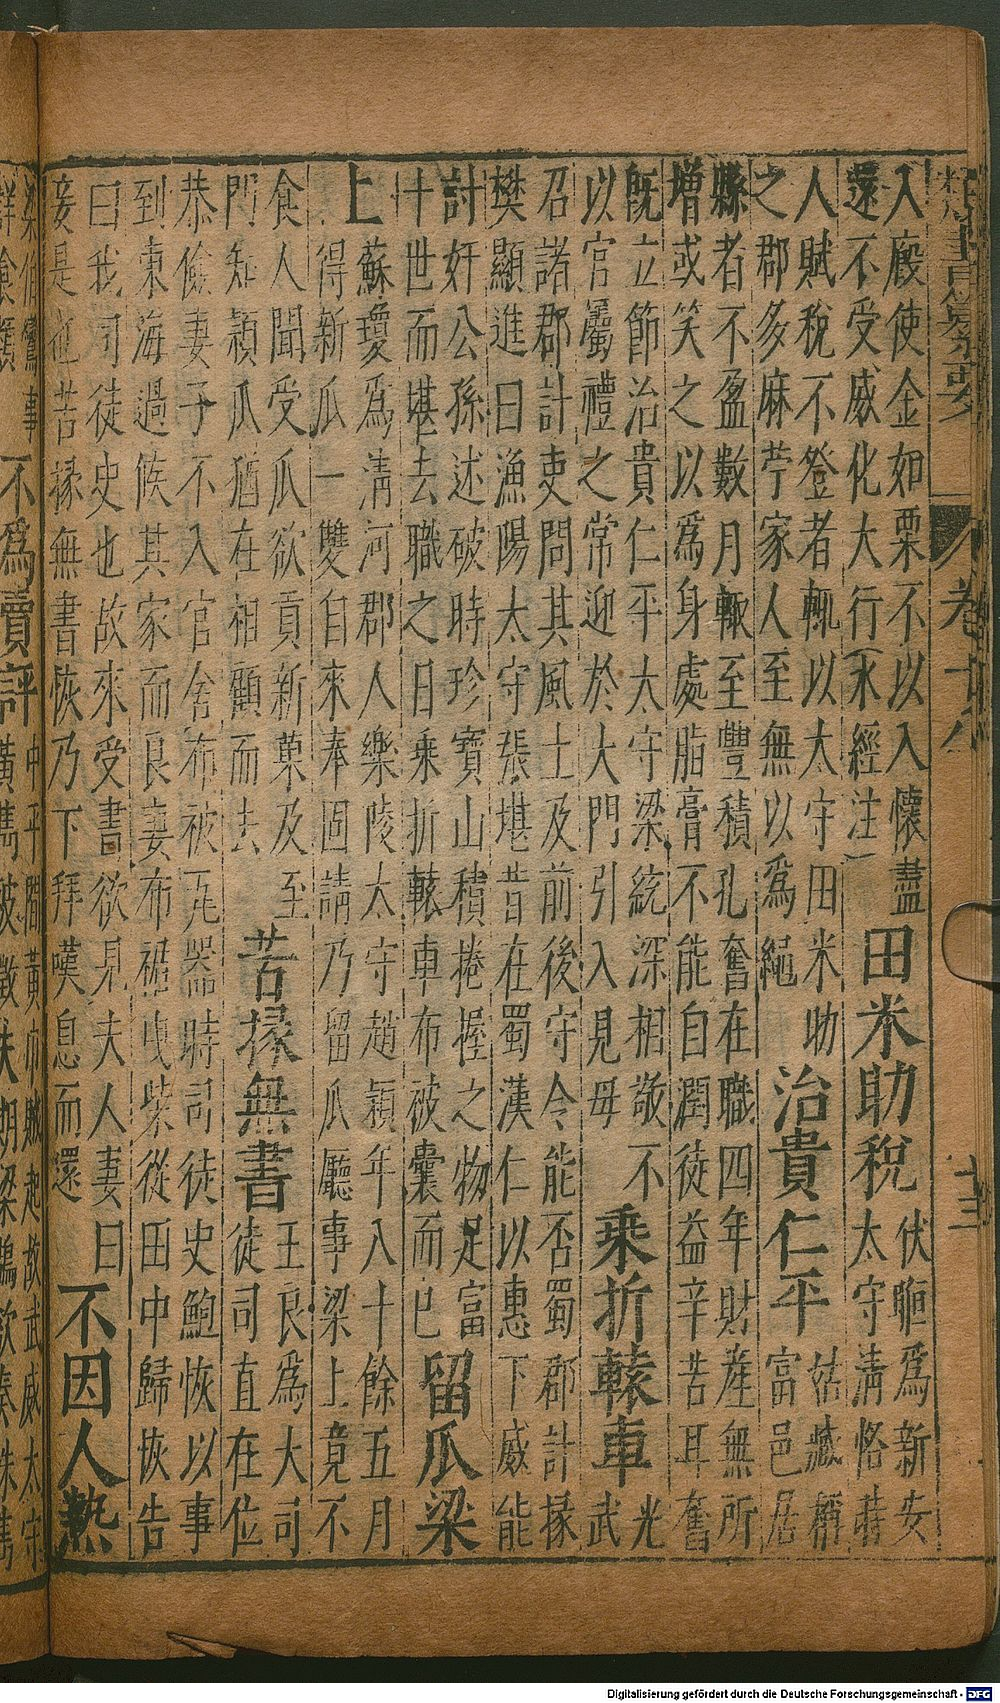 入廄使金如粟不以入懷盡
還不受威化大行(水經注)
田米助稅
伏暅爲新安
太守清恪蒞
人賦稅不登者輒以太守田米助
之郡多麻苧家人至無以爲繩
治貴仁平
姑臧稱
富邑居
縣者不盈數月輒至豐積孔奮在職四年財産無所
增或笑之以爲身處脂膏不能自潤徒益辛苦耳奮
既立節治貴仁平太守梁統深相敬不
以官屬禮之常迎於大門引入見母
乘折轅車
光
武
召諸郡計吏問其風土及前後守令能否蜀郡計掾
樊顯進曰漁陽太守張堪昔在蜀漢仁以惠下威能
討奸公孫述破時珍寶山積捲握之物足富
十世而堪去職之日乘折轅車布被囊而已
留瓜梁
上
蘇瓊爲清河郡人樂陵太守趙潁年八十餘五月
得新瓜一雙自來奉固請乃留瓜廳事梁上竟不
食人聞受瓜欲貢新菓及至
門知潁瓜猶在相顧而去
苦掾無書
王良爲大司
徒司直在位
恭儉妻子不入官舍布被瓦器時司徒史鮑恢以事
到東海過候其家而良妻布裙曳柴從田中歸恢告
曰我司徒史也故來受書欲見夫人妻曰
妾是也苦掾無書恢乃下拜嘆息而還
不因人熱
梁伯鸞事
不爲賣評
中平間黃巾賊起故武威太守
黃雋被徵失期梁鵠欲奏誅雋
卷十八
十三
Digitalisierung gefördert durch die Deutsche Forschungsgemeinschaft - DFG